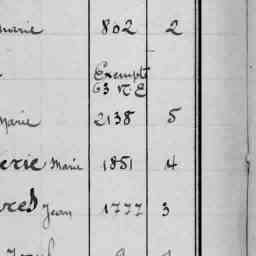 marie 802 2
Exempté
63 R E
Marie 2138 5
erie Marie 1851 4
res Jean 1777 3